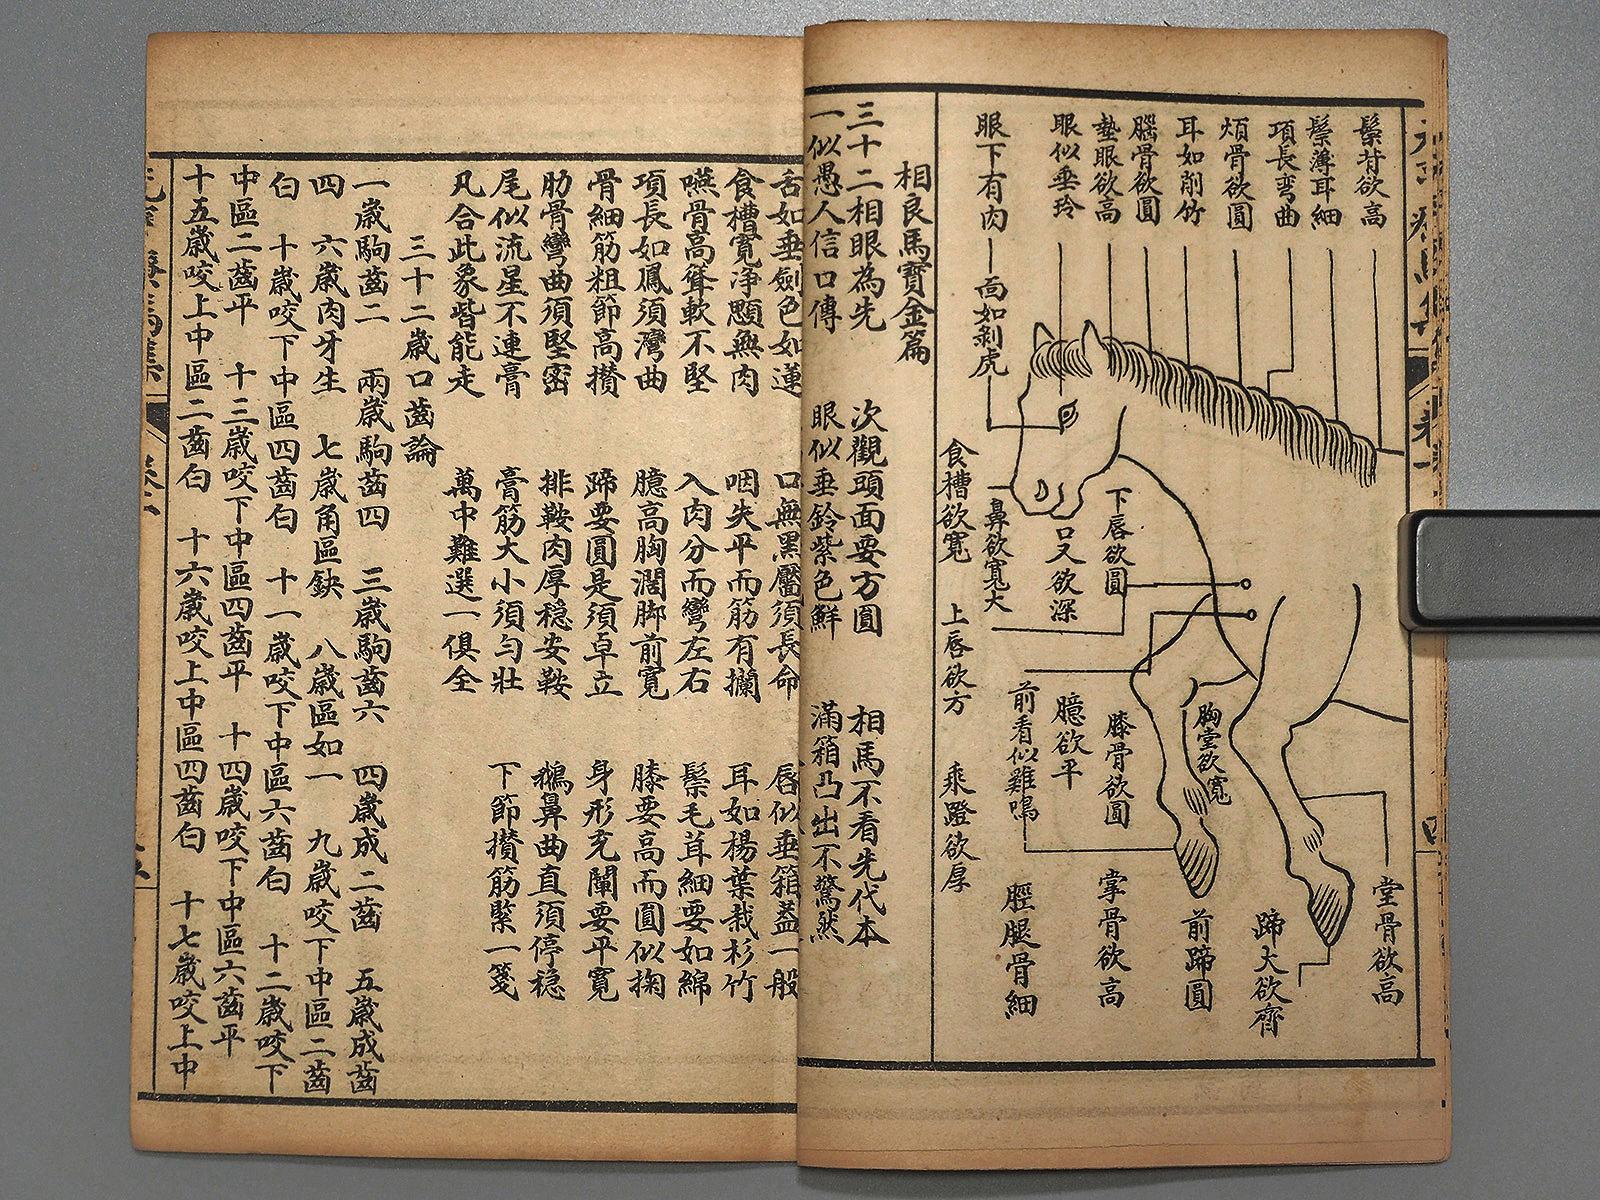 鬃背欲高
鬃薄耳細
項長弯曲
頰骨欲圓
耳如削竹
腦骨欲圓
墊眼欲高
眼似垂玲
眼下有肉
面如剝虎
食槽欲寬
鼻欲寬大
口叉欲深
下唇欲圓
上唇欲方
乘蹬欲厚
前看似雞鳴
臆欲平
膝骨欲圓
胸堂欲寬
脛腿骨細
掌骨欲高
前蹄圓
蹄大欲齊
堂骨欲高
相良馬寶金篇
三十二相眼為先 次觀頭面要方圓 相馬不看先代本
一似愚人信口傳 眼似垂鈴紫色鮮 滿箱凸出不驚然
舌如垂劍色如蓮 口無黑靨須長命 唇似垂箱蓋一般
食槽寬淨顋無肉 咽失平而筋有攔 耳如楊葉栽杉竹
嚥骨高聳軟不堅 入肉分而彎左右 鬃毛茸細要如綿
項長如鳳須灣曲 臆高胸濶脚前寬 膝要高而圓似掬
骨細筋粗節高攢 蹄要圓是須卓立 身形充闌要平寬
肋骨彎曲須堅密 排鞍肉厚穏安鞍 鵝鼻曲直須停穏
尾似流星不連膏 膏筋大小須勻壯 下節攢筋緊一箋
凡合此象皆能走 萬中難選一俱全
三十二歲口齒論
一歲駒齒二 兩歲駒齒四 三歲駒齒六 四歲成二齒 五歲成齒
四 六歲肉牙生 七歲角區缺 八歲區如一 九歲咬下中區二齒
臼 十歲咬下中區四齒臼 十一歲咬下中區六齒臼 十二歲咬下
中區二齒平 十三歲咬下中區四齒平 十四歲咬下中區六齒平
十五歲咬上中區二齒臼 十六歲咬上中區四齒臼 十七歲咬上中